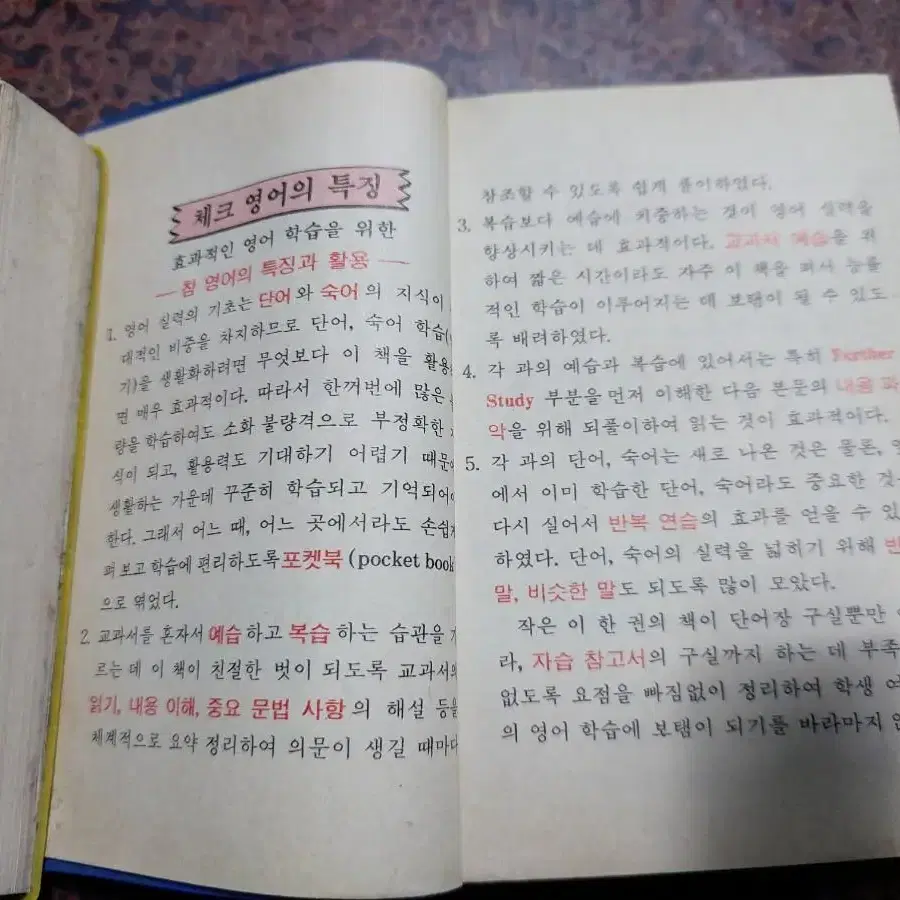 체크 영어의 특징
효과적인 영어 학습을 위한
— 참 영어의 특징과 활용 —
1. 영어 실력의 기초는 단어와 숙어의 지식이
대적인 비중을 차지하므로 단어, 숙어 학습(
기)를 생활화하려면 무엇보다 이 책을 활용
면 매우 효과적이다. 따라서 한꺼번에 많은
량을 학습하여도 소화 불량격으로 부정확한
식이 되고, 활용력도 기대하기 어렵기 때문에
생활하는 가운데 꾸준히 학습되고 기억되어야
한다. 그래서 어느 때, 어느 곳에서라도 손쉽게
펴 보고 학습에 편리하도록 포켓북(pocket book
으로 엮었다.
2. 교과서를 혼자서 예습하고 복습 하는 습관을 기
르는 데 이 책이 친절한 벗이 되도록 교과서의
읽기, 내용 이해, 중요 문법 사항의 해설 등을
체계적으로 요약 정리하여 의문이 생길 때마다
참조할 수 있도록 쉽게 풀이하였다.
3. 복습보다 예습에 치중하는 것이 영어 실력을
향상시키는 데 효과적이다. 교과서 예습을 위
하여 짧은 시간이라도 자주 이 책을 펴서 능률
적인 학습이 이루어지는 데 보탬이 될 수 있도
록 배려하였다.
4. 각 과의 예습과 복습에 있어서는 특히 Further
Study 부분을 먼저 이해한 다음 본문의 내용 파
악을 위해 되풀이하여 읽는 것이 효과적이다.
5. 각 과의 단어, 숙어는 새로 나온 것은 물론,
에서 이미 학습한 단어, 숙어라도 중요한 것
다시 실어서 반복 연습의 효과를 얻을 수 있
하였다. 단어, 숙어의 실력을 넓히기 위해 반
말, 비슷한 말도 되도록 많이 모았다.
작은 이 한 권의 책이 단어장 구실뿐만
라, 자습 참고서의 구실까지 하는 데 부족
없도록 요점을 빠짐없이 정리하여 학생 여
의 영어 학습에 보탬이 되기를 바라마지 않